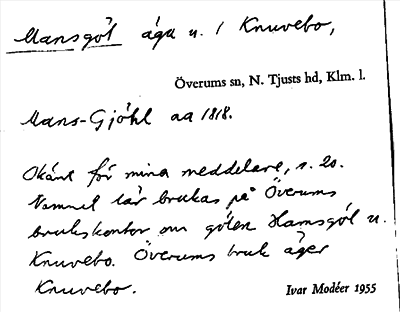 Mansgöl äga u. / Knuvebo,
Överums sn, N. Tjusts hd, Klm. l.
Mans-Gjöhl aa 1818.
Okänt för mina meddelare, s. 20.
Namnet lär brukas på Överums
brukskontor om gölen Hamsgöl u.
Knuvebo. Överums bruk äger
Knuvebo.
Ivar Modéer 1955